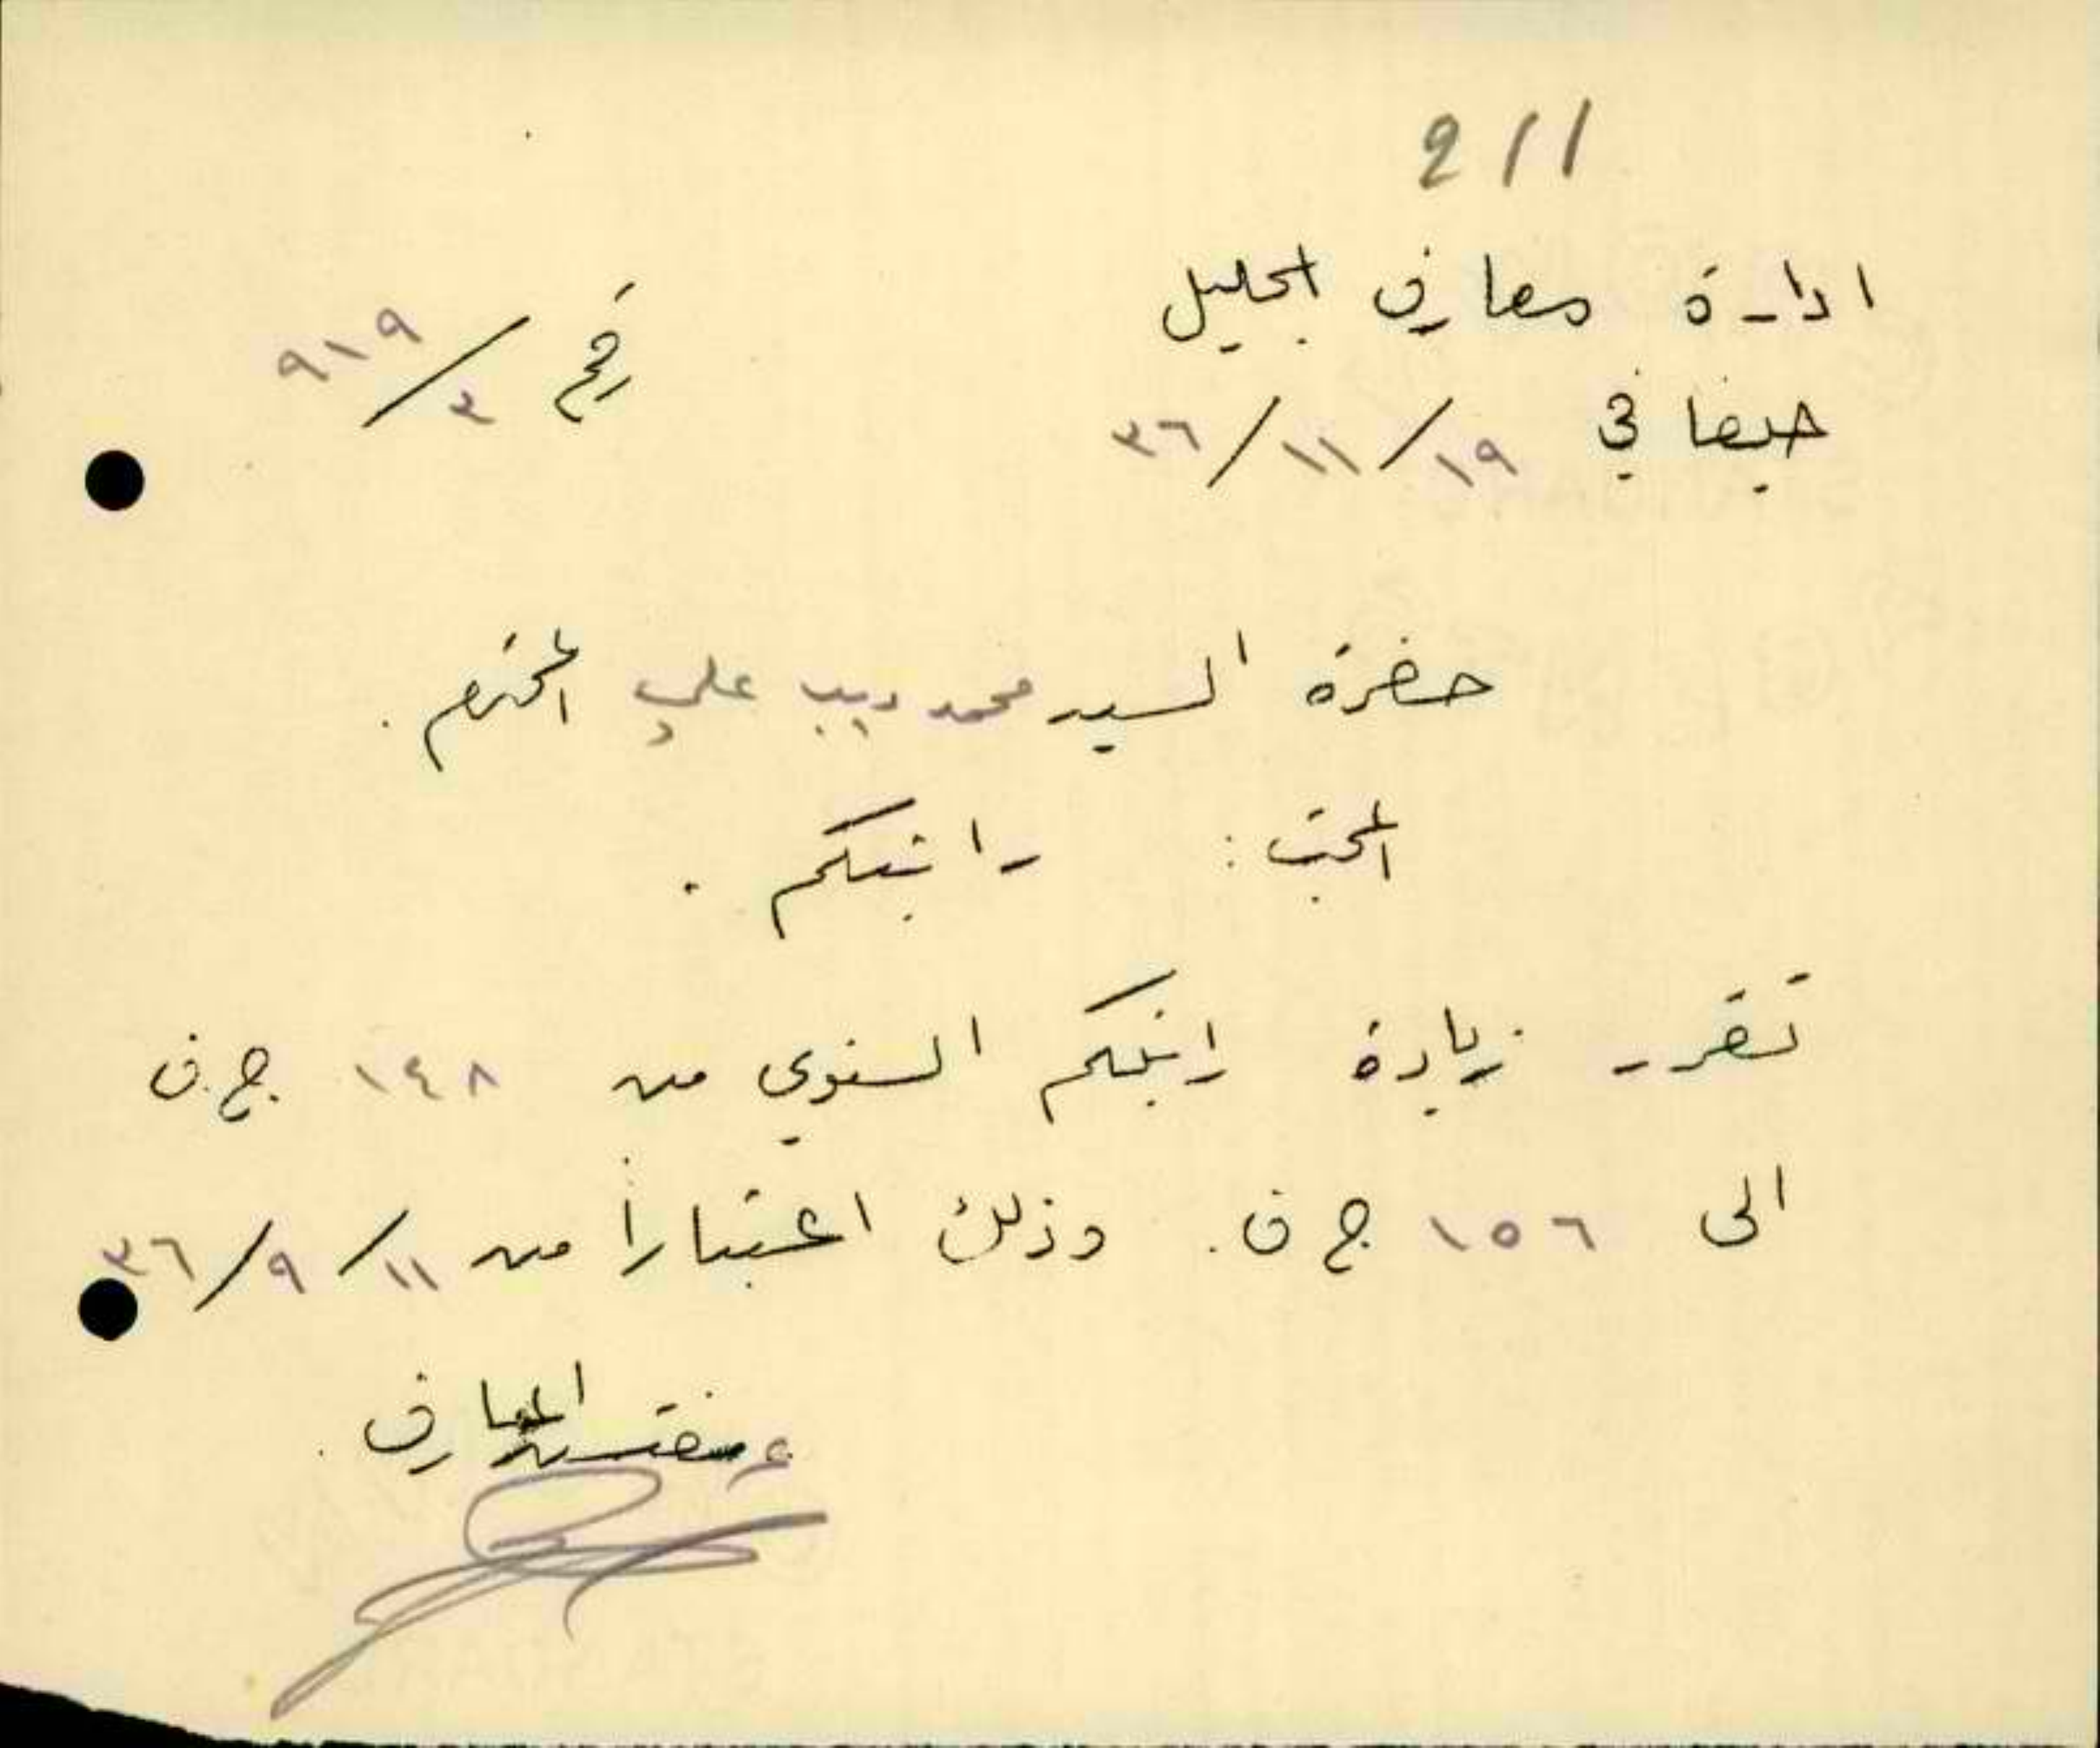 211
ادارة معارف الجليل
رقم ٣/٩١٩
حيفا في ١٩/١١/٣٦
حضرة السيد محمد ديب علي المحترم.
المبحث: راتبكم.
تقرر زيادة راتبكم السنوي من ١٤٨ ج.ف
الى ١٥٦ ج ف. وذلك اعتباراً من ١١/٩/٣٦
ع مفتش المعارف.